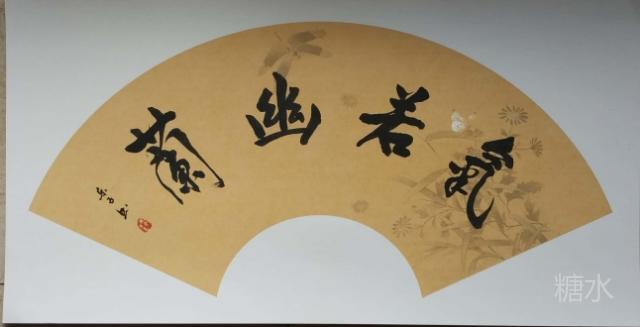 氣若幽蘭
糖水